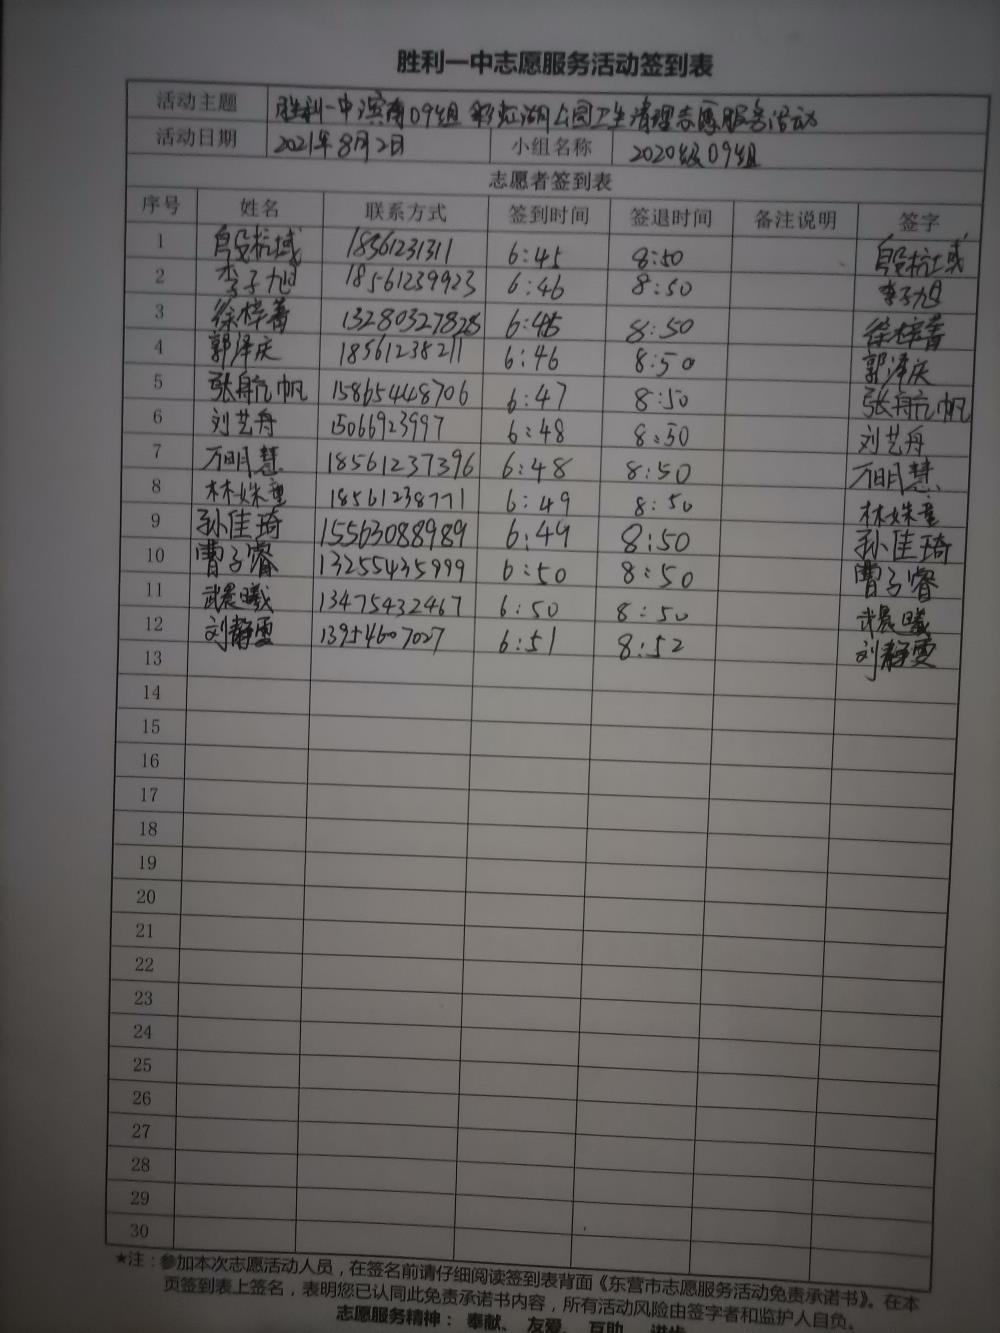 胜利一中志愿服务活动签到表
活动主题 胜利一中滨南09组 彩虹湖公园卫生清理志愿服务活动
活动日期 2021年8月2日 小组名称 2020级09组
志愿者签到表
序号 姓名 联系方式 签到时间 签退时间 备注说明 签字
1 殷杭域 18561231311 6:45 8:50 殷杭域
2 李子旭 18561239923 6:46 8:50 李子旭
3 徐梓菁 13280327828 6:46 8:50 徐梓菁
4 郭泽庆 18561238211 6:46 8:50 郭泽庆
5 张航帆 15865448706 6:47 8:50 张航帆
6 刘艺舟 15066923997 6:48 8:50 刘艺舟
7 万明慧 18561237396 6:48 8:50 万明慧
8 林姝童 18561238771 6:49 8:50 林姝童
9 孙佳琦 15563088989 6:49 8:50 孙佳琦
10 曹子睿 13255435999 6:50 8:50 曹子睿
11 武晨曦 13475432467 6:50 8:50 武晨曦
12 刘静雯 13954607027 6:51 8:52 刘静雯
13
14
15
16
17
18
19
20
21
22
23
24
25
26
27
28
29
30
★注：参加本次志愿活动人员，在签名前请仔细阅读签到表背面《东营市志愿服务活动免责承诺书》。在本
页签到表上签名，表明您已认同此免责承诺书内容，所有活动风险由签字者和监护人自负。
志愿服务精神：奉献、友爱、互助、进步